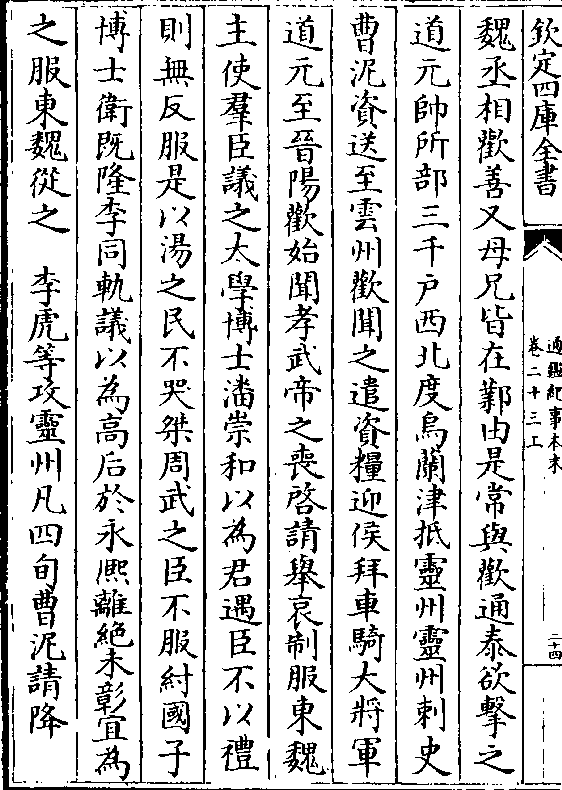 欽定四庫全書
通鑑紀事本末
卷二十三上
二十四
魏丞相歡善又母兄皆在鄴由是常與歡通泰欲擊之
道元帥所部三千户西北度烏蘭津抵靈州靈州刺史
曹泥資送至雲州歡聞之遣資糧迎侯拜車騎大將軍
道元至晉陽歡始聞孝武帝之喪啓請舉哀制服東魏
主使羣臣議之太學博士潘崇和以為君遇臣不以禮
則無反服是以湯之民不哭桀周武之臣不服紂國子
博士衛既隆李同軌議以為高后於永熈離絶未彰宜為
之服東魏從之　李虎等攻靈州凡四旬曹泥請降